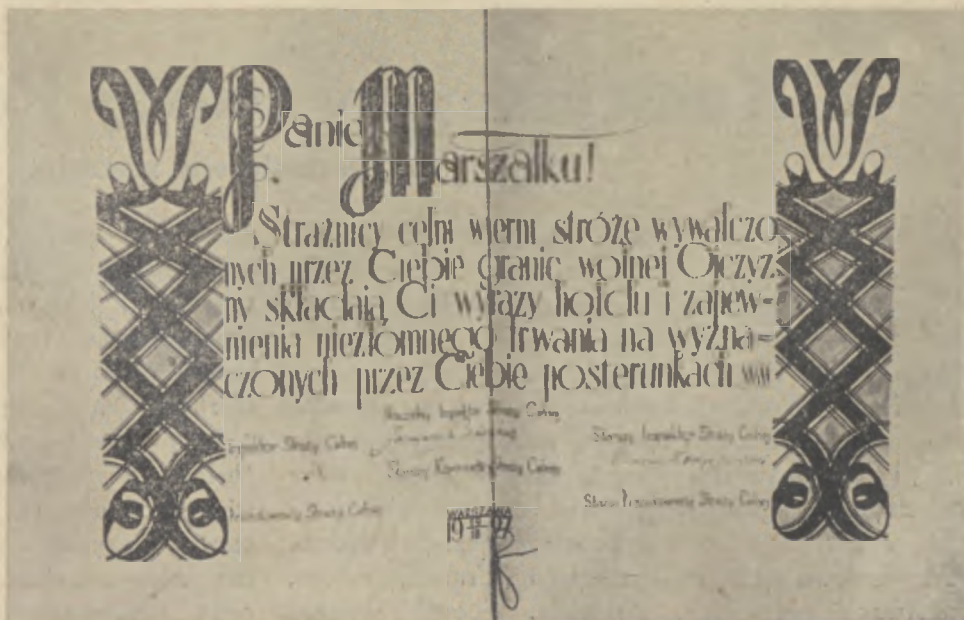 Panie Marszałku!
Strażnicy celni wierni stróże wywalczo
nych przez Ciebie granic wolnej Ojczyz
ny składają Ci wyrazy hołdu i zapew=
nienia niezłomnego trwania na wyzna=
czonych przez Ciebie posterunkach
Naczelny Inspektor Straży Celnej
Inspektor Straży Celnej
Starszy Inspektor Straży Celnej
Starszy Komisarz Straży Celnej
Przodownik Straży Celnej
Starszy Przodownik Straży Celnej
WARSZAWA
19 27